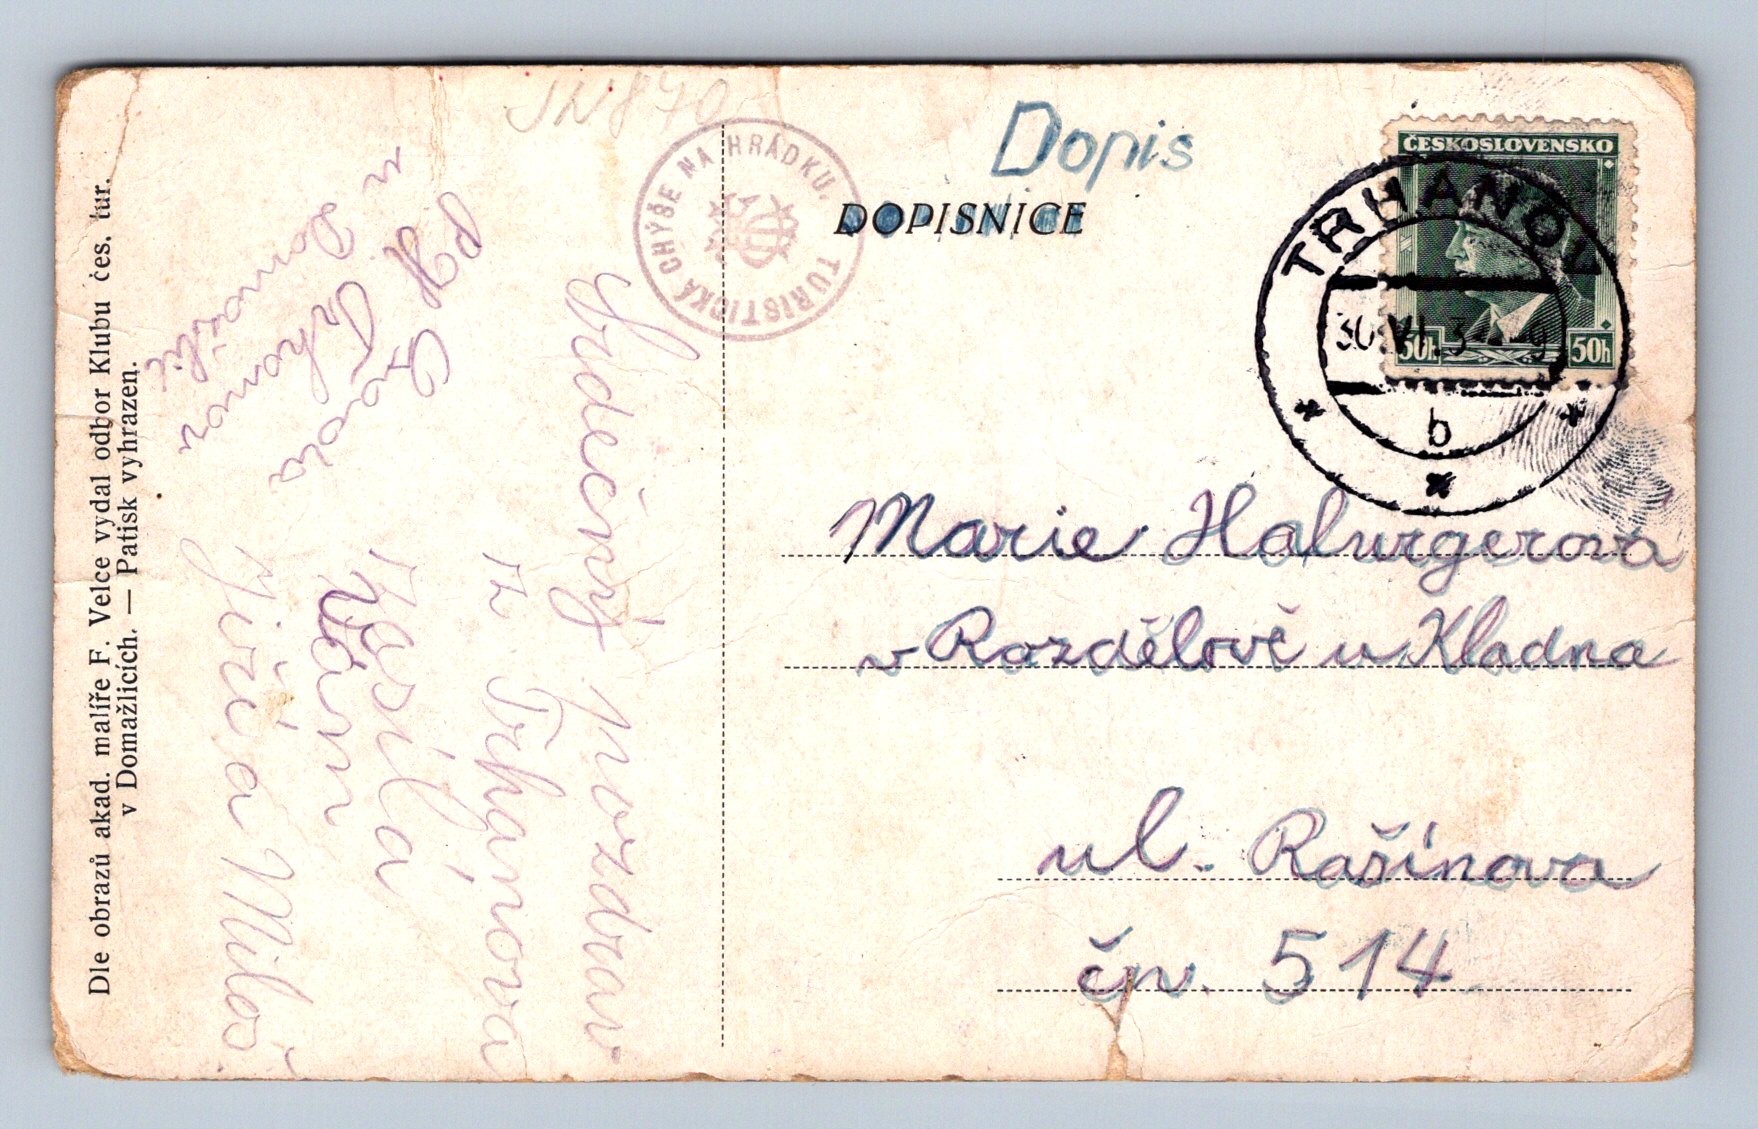 JN870
TURISTICKÁ CHÝŠE NA HRÁDKU.
Dopis
DOPISNICE
ČESKOSLOVENSKO
50h 50h
TRHANOV
30.VI.3 -9
b
Marie Halurgerová
v Rozdělově u Kladna
ul. Rašínova
čp. 514.
Srdečný pozdrav
z Trhanova
Vasílá
Vám
Jiřů a Miloš
Trhanov
u Domažlic
Dle obrazů akad. malíře F. Velce vydal odbor Klubu čes. tur.
v Domažlicích. — Patisk vyhrazen.